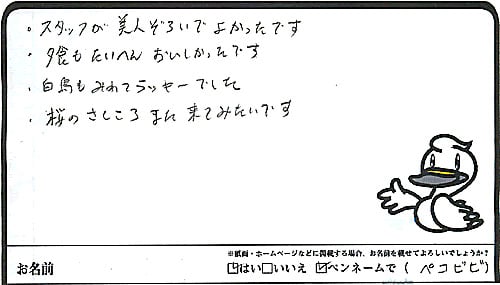 ・スタッフが美人ぞろいでよかったです
・夕食もたいへんおいしかったです
・白鳥もみれてラッキーでした
・桜のさくころまた来てみたいです
※紙面・ホームページなどに掲載する場合、お名前を載せてよろしいでしょうか?
お名前 □はい □いいえ ☑ペンネームで( ペコビビ )